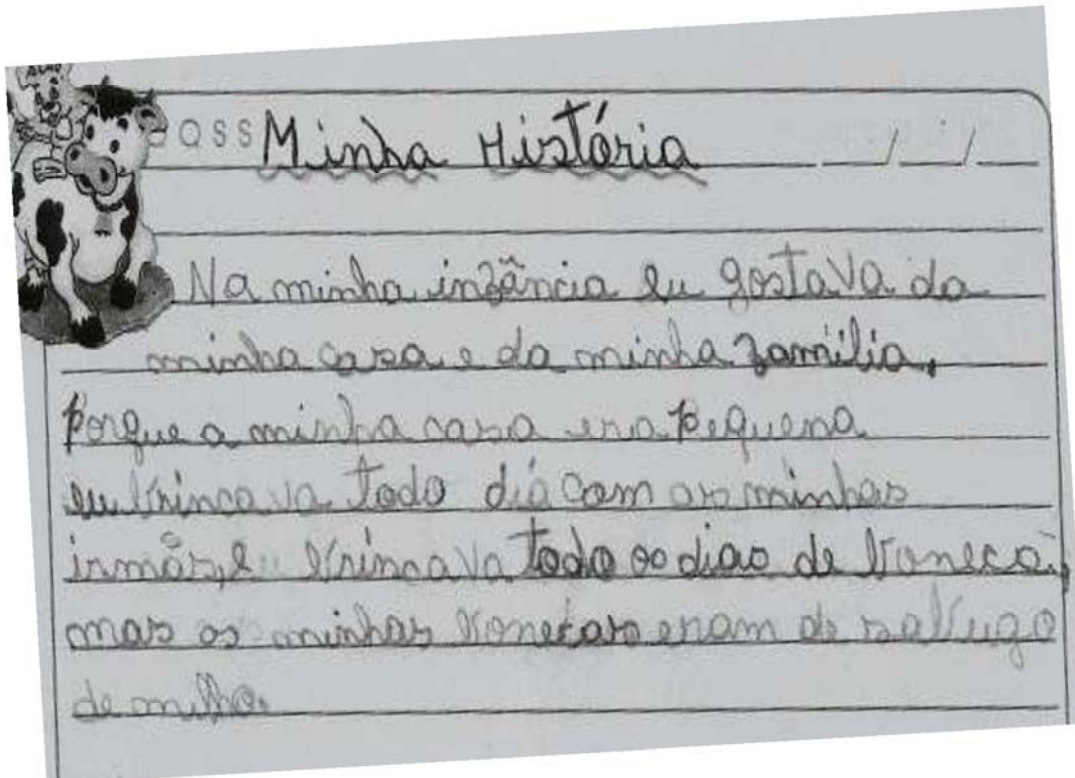 Minha História
Na minha infância eu gostava da
minha casa e da minha família,
Porque a minha casa era Pequena
eu brincava todo dia com as minhas
irmãs, e brincava todo os dias de boneca,
mas as minhas bonecas eram de sabugo
de milho.